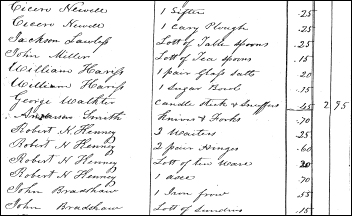 Cicero Newell 1 Sifter .25
Cicero Newell 1 Cary Plough .25
Jackson Lawless Lott of Table spoons .25
John Miller Lott of Tea spoons .15
William Hariss 1 pair Glass Salts .20
William Hariss 1 Sugar Bowl .15
George Walker Candle Stick & Snuffers .45 2.95
Smith Knives & Forks .70
Robert H. Henney 2 Waiters .25
Robert H Henney 2 pair Hinges .60
Robert H. Henney Lott of tin Ware .20
Robert H. Henney 1 axe .70
John Bradshaw 1 Iron frow .55
John Bradshaw Lott of Sundries .15